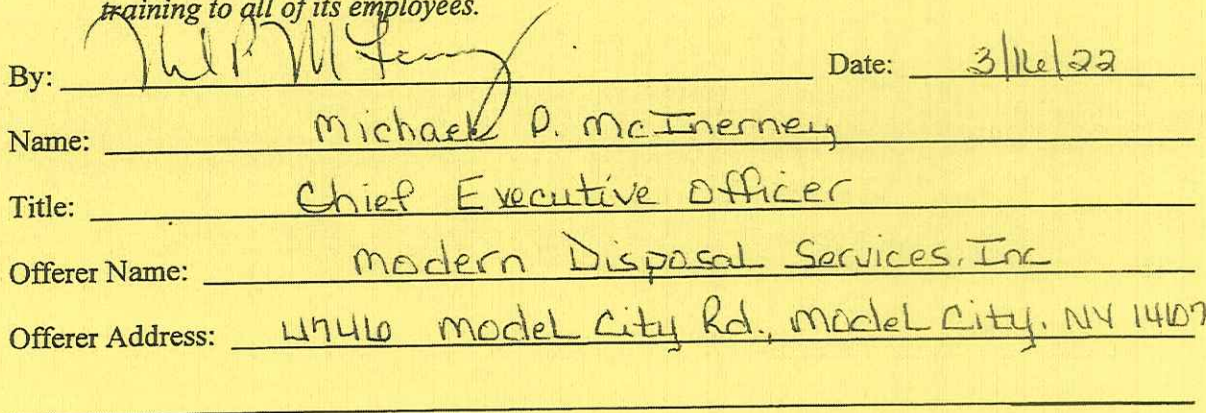 training to all of its employees.
By: Date: 3/16/22
Name: Michael P. McInerney
Title: Chief Executive Officer
Offerer Name: Modern Disposal Services, Inc
Offerer Address: 4746 Model City Rd., Model City, NY 14107